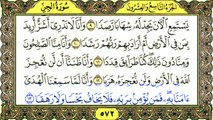 الجزء التاسع والعشرون سورة الجن
يَسْتَمِعِ ٱلْآنَ يَجِدْ لَهُۥ شِهَابًا رَّصَدًا ٩ وَأَنَّا لَا نَدْرِىٓ أَشَرٌّ أُرِيدَ
بِمَن فِى ٱلْأَرْضِ أَمْ أَرَادَ بِهِمْ رَبُّهُمْ رَشَدًا ١٠ وَأَنَّا مِنَّا ٱلصَّٰلِحُونَ
وَمِنَّا دُونَ ذَٰلِكَ كُنَّا طَرَآئِقَ قِدَدًا ١١ وَأَنَّا ظَنَنَّآ أَن لَّن نُّعْجِزَ ٱللَّهَ
فِى ٱلْأَرْضِ وَلَن نُّعْجِزَهُۥ هَرَبًا ١٢ وَأَنَّا لَمَّا سَمِعْنَا ٱلْهُدَىٰٓ
ءَامَنَّا بِهِۦ فَمَن يُؤْمِنۢ بِرَبِّهِۦ فَلَا يَخَافُ بَخْسًا وَلَا رَهَقًا ١٣
٥٧٢